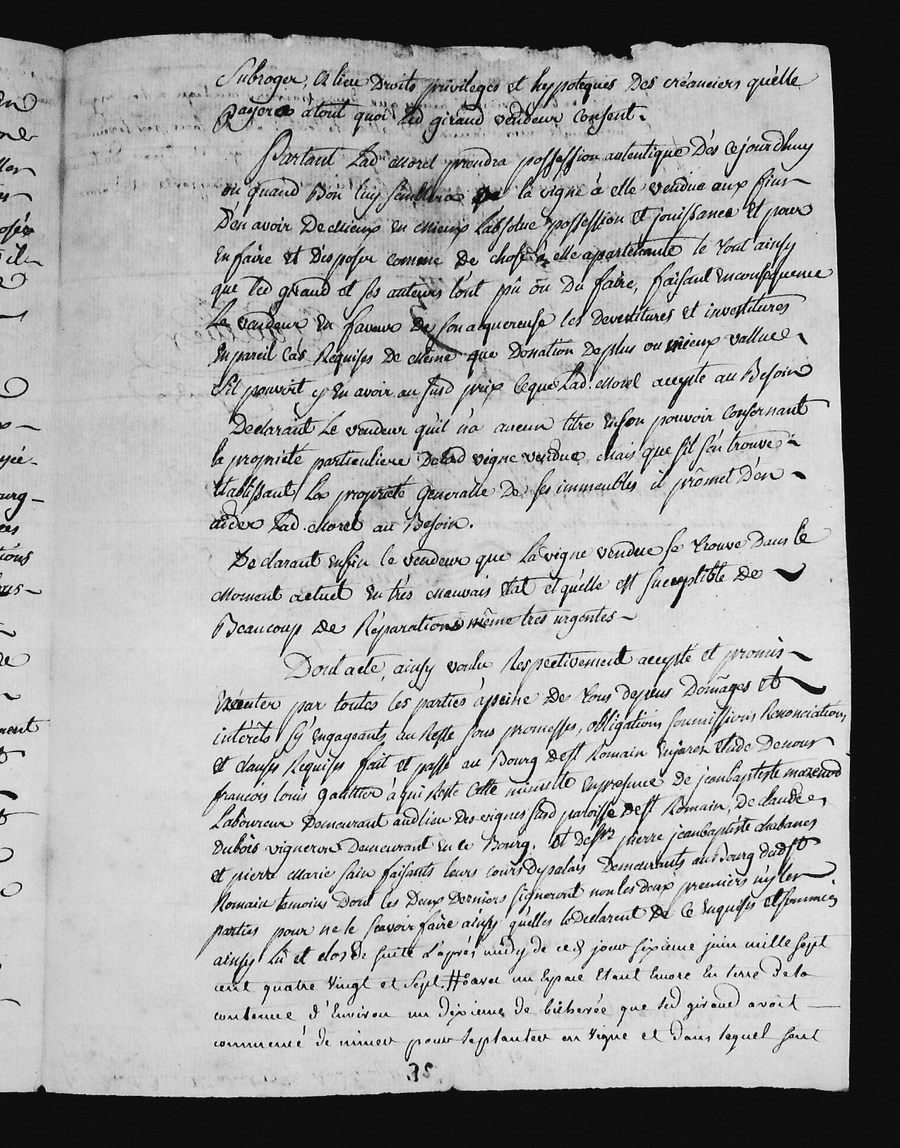 Subroger, Ce lieu Droits privileges et hypoteques Des créanciers qu'elle
Payera à tout quoi led giraud vendeur consent.
Partant Lad. Morel prendra possession autentique Des cejourdhuy
ou quand Bon luy semblera de la vigne à elle vendue aux fins
D'en avoir De mieux en mieux L'absolue possession et jouissance et pour
En faire et Disposer comme de chose à elle apartenante le tout ainsy
que led giraud et ses auteurs l'ont pû ou Du faire, faisant En consequence
Le vendeur En faveur de son acquereuse les devestitures et investitures
En pareil Cas Requises de même que Donation De plus ou mieux vallue
s'il pouvoit y En avoir au susd prix ce que Lad. Morel accepte au Besoin
Declarant Le vendeur qu'il n'a aucun titre En son pouvoir consernant
la propriete particuliere De lad vigne vendue mais que s'il s'en trouve
Etablissant La propriété generalle de ses immeubles il prômet D'en
aider Lad. Morel au Besoin.
Declarant Enfin le vendeur que La vigne vendue se trouve Dans le
Moment actuel En trés Mauvais Etat et qu'elle est susceptible de
Beaucoup de Réparations même tres urgentes
Dont acte, ainsy voulu Respectivement accepté et promis
Executer par toutes les parties à peine de tous depens Domâges et
intérêts s'y engageants au Reste sous promesses, obligations soumissions Renonciations
et clauses Requises fait et passé au Bourg de st Romain En jarest Etude De nous
françois louis gaultier a qui Reste Cette minutte En presence de jean baptiste mazenod
Laboureur Demeurant audlieu Des vignes susd paroisse de st Romain, de claude
Dubois vigneron Demeurant En ce Bourg, et de srs pierre jean baptiste chabanes
et pierre Marie Sain faisants leurs cours de palais Demeurants au Bourg dud st
Romain temoins Dont les Deux Derniers signeront non les deux premiers n'y les
parties pour ne le sçavoir faire ainsy qu'elles le declarent de ce Enquises et sommées
ainsy Lû et clos de suite l'après midy de ce jour sixieme juin mille sept
cent quatre vingt et sept. # avec un Espace Etant Encore En terre de la
contenue d'Environ un dixieme de bicherée que led giraud avoit
commencé de miner pour le planter en vigne et dans lequel sont
35